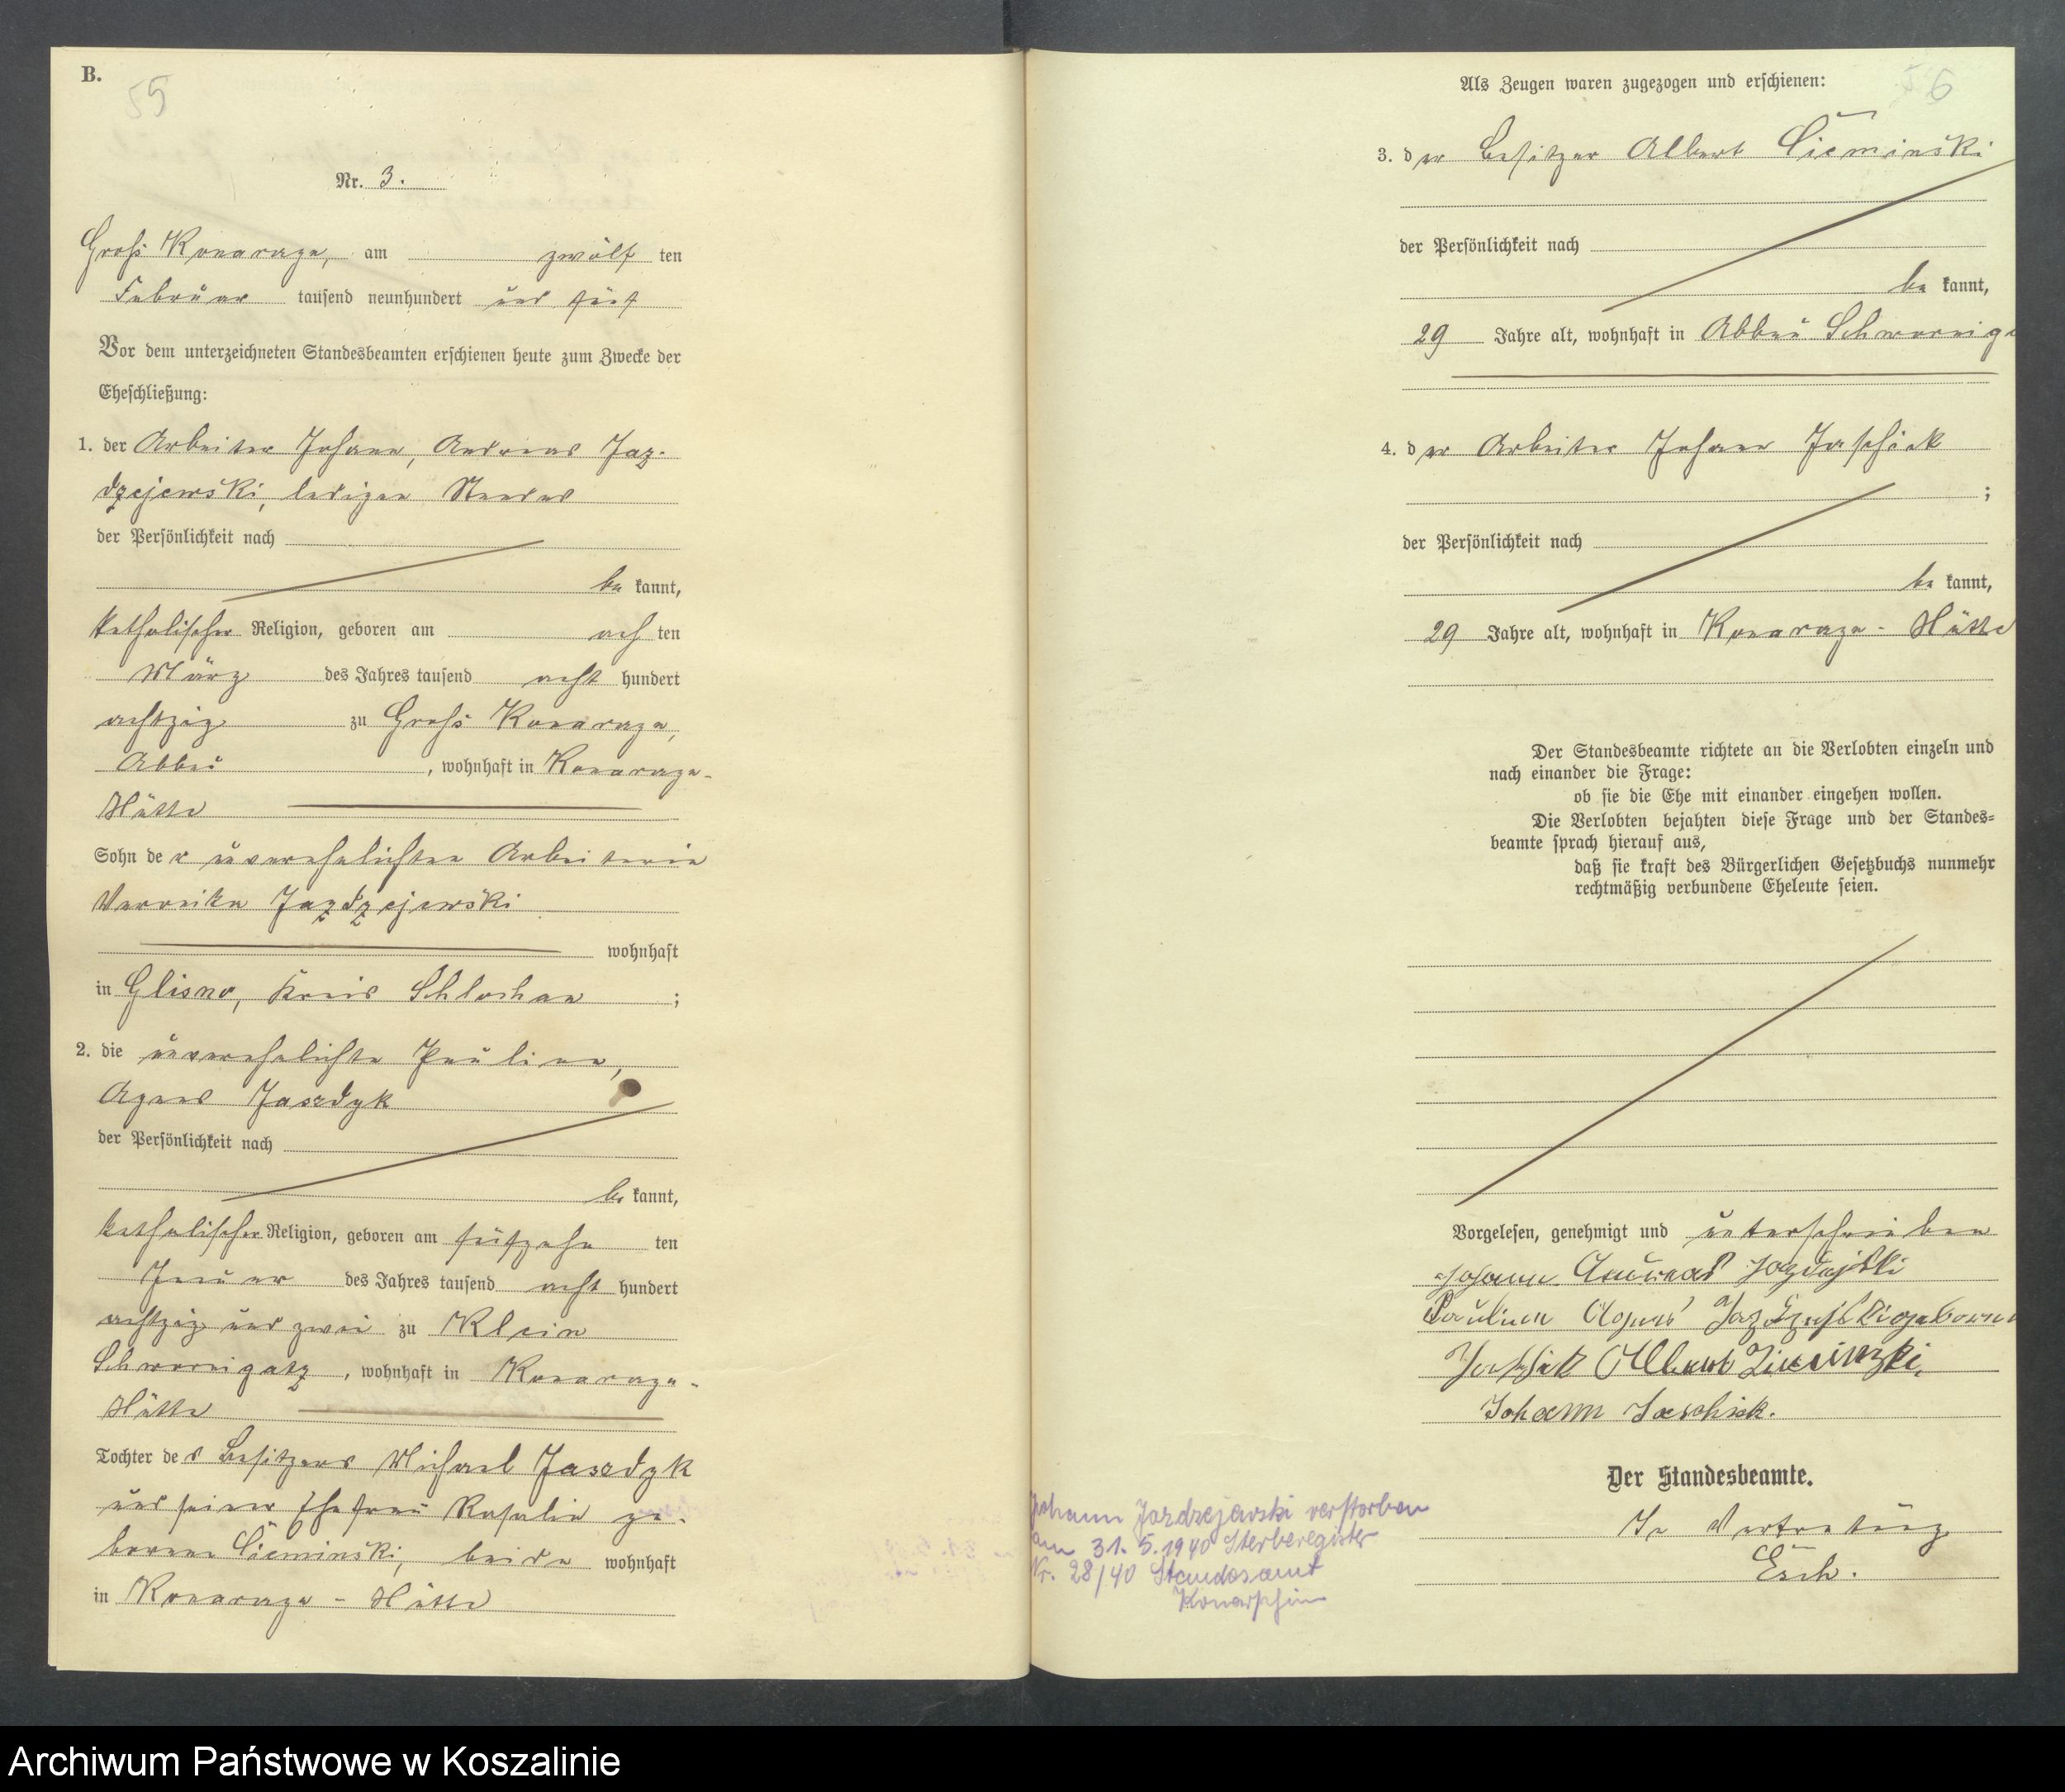 B.
55
Nr. 3.
Groß Konarczyn, am zwölf ten
Februar tausend neunhundert und fünf
Vor dem unterzeichneten Standesbeamten erschienen heute zum Zwecke der
Eheschließung:
1. der Arbeiter Johann, Andreas Jaz-
dzejewski, ledigen Standes
der Persönlichkeit nach
be kannt,
katholischer Religion, geboren am ach ten
März des Jahres tausend acht hundert
achtzig zu Groß Konarczyn,
Abbau, wohnhaft in Konarczyn-
Hütte
Sohn der unverehelichten Arbeiterin
Veronika Jazdzejewski
wohnhaft
in Glisno, Kreis Schlochau ;
2. die unverehelichte Pauline,
Agnes Jaszdyk
der Persönlichkeit nach
be kannt,
katholischer Religion, geboren am fünfzehn ten
Januar des Jahres tausend acht hundert
achtzig und zwei zu Klein
Schwornigatz, wohnhaft in Konarczyn-
Hütte
Tochter des Besitzers Michael Jaszdyk
und seiner Ehefrau Rosalie ge-
borene Cieminski, beide wohnhaft
in Konarczyn - Hütte
56
Als Zeugen waren zugezogen und erschienen:
3. der Besitzer Albert Cieminski
der Persönlichkeit nach
be kannt,
29 Jahre alt, wohnhaft in Abbau Schwornig
4. der Arbeiter Johann Jaschick
;
der Persönlichkeit nach
be kannt,
29 Jahre alt, wohnhaft in Konarczyn - Hütte
Der Standesbeamte richtete an die Verlobten einzeln und
nach einander die Frage:
ob sie die Ehe mit einander eingehen wollen.
Die Verlobten bejahten diese Frage und der Standes-
beamte sprach hierauf aus,
daß sie kraft des Bürgerlichen Gesetzbuchs nunmehr
rechtmäßig verbundene Eheleute seien.
Vorgelesen, genehmigt und unterschrieben
Johann Andreas
Pauline Agnes geborene
Albert
Johann Jaschick.
Der Standesbeamte.
In Vertretung
Esch.
Johann Jazdzejewski verstorben
am 31.5.1940 Sterberegister
Nr. 28/40 Standesamt
Konarschin
Archiwum Państwowe w Koszalinie